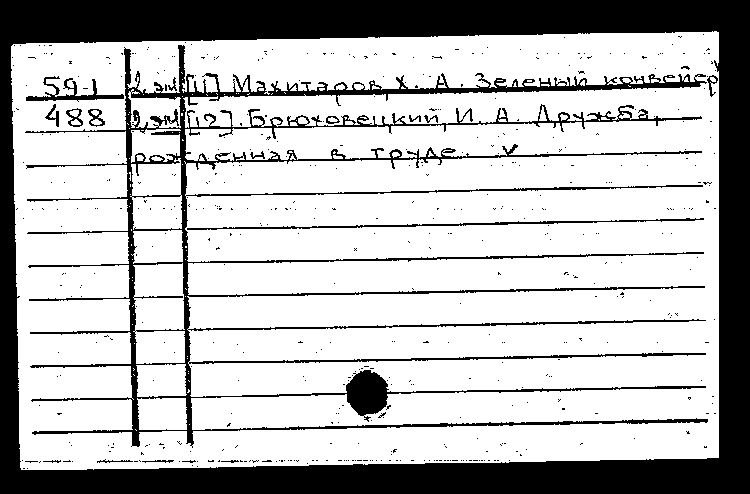 59-1 2 эк. [11] Махитаров, Х. А. Зеленый конвейер
488 2 эк. [12]. Брюховецкий, И. А. Дружба,
рожденная в труде. v